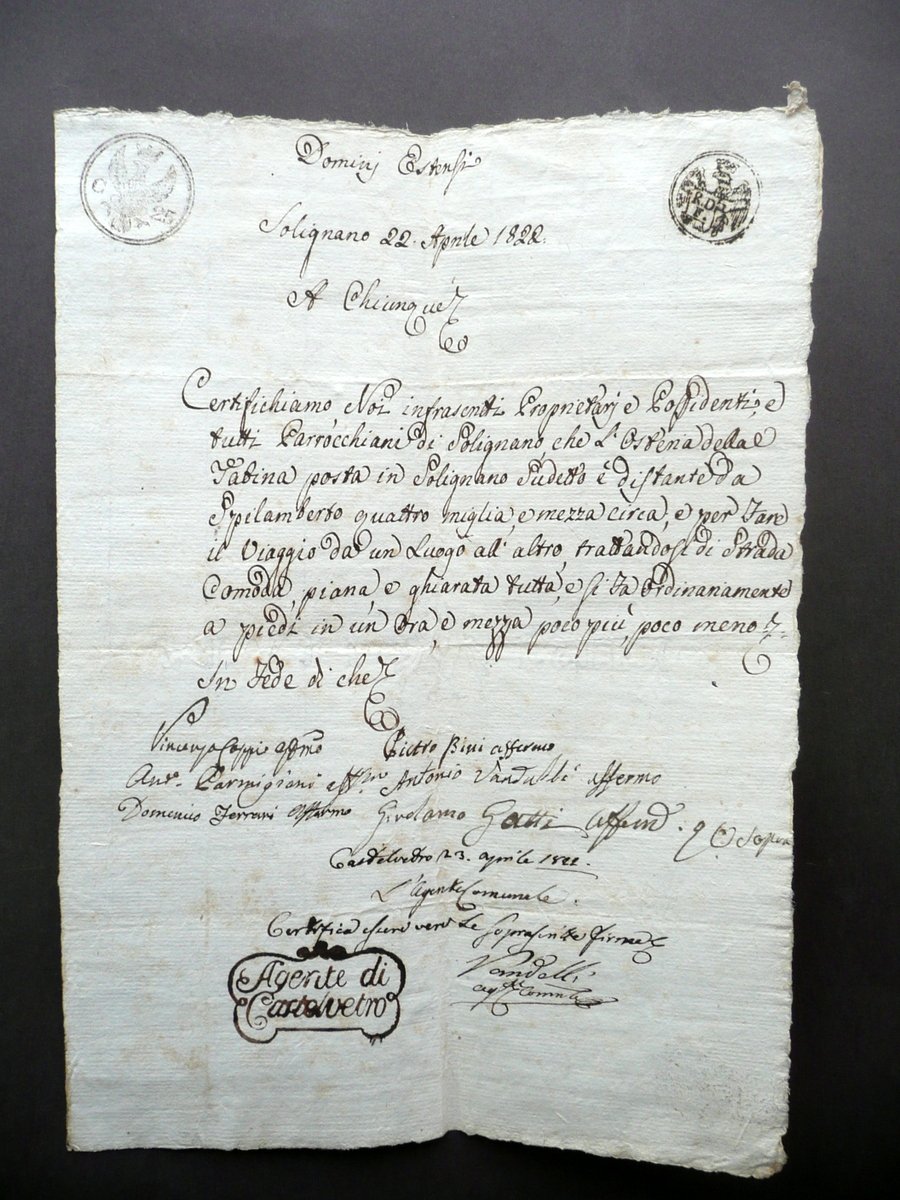 Dominj Estensi
Solignano 22. Aprile 1822.
A Chiunque
C 25
Certifichiamo Noi infrascritti Proprietarj e Possidenti, e
tutti Parrocchiani di Solignano, che L'Osteria della
Fabina posta in Solignano Sudetto è distante da
Spilamberto quattro miglia, e mezza circa, e per fare
il Viaggio da un Luogo all'altro, trattandosi di Strada
Comoda, piana e ghiarata tutta, e si fa Ordinariamente
a piedi in un'Ora, e mezza poco più, poco meno
In fede di che
Vincenzo Coppi affmo Pietro Bini affermo
Anto. Parmigiani Antonio Vandelli affermo
Domenico Ferrari Affermo Girolamo Gatti
Castelvetro 23. aprile 1822.
L'Agente Comunale.
Certifica essere vere le soprascritte firme
Agente di
Castelvetro
Vandelli